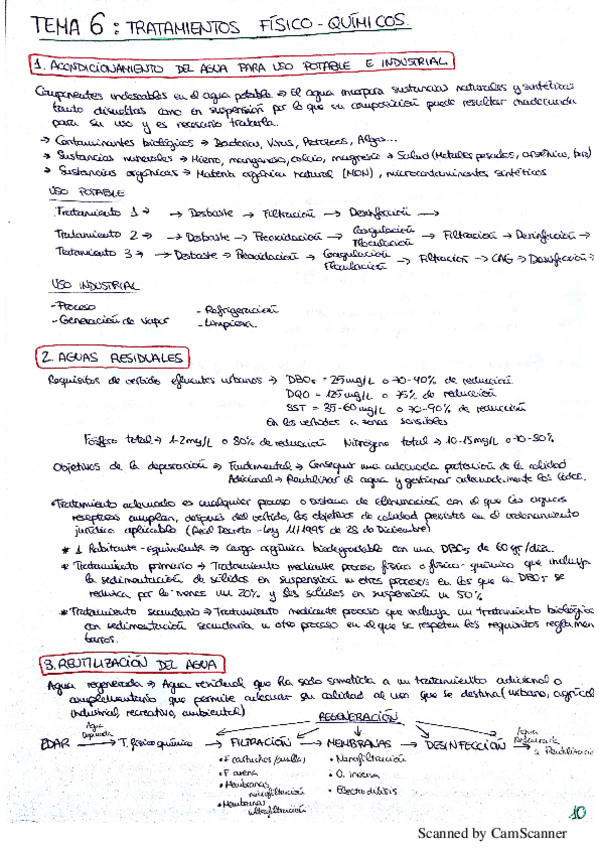 TEMA 6: TRATAMIENTOS FÍSICO-QUÍMICOS.
1. ACONDICIONAMIENTO DEL AGUA PARA USO POTABLE E INDUSTRIAL.
Componentes indeseables en el agua potable → El agua incorpora sustancias naturales y sintéticas
tanto disueltas como en suspensión por lo que su composición puede resultar inadecuada
para su uso y es necesario tratarla.
→ Contaminantes biológicos → Bacterias, Virus, Protozoos, Algas...
→ Sustancias minerales → Hierro, manganeso, calcio, magnesio → Salud (Metales pesados, arsénico, )
→ Sustancias orgánicas → Materia orgánica natural (MON), microcontaminantes sintéticos
USO POTABLE
Tratamiento 1 → → Desbaste → Filtración → Desinfección →
Tratamiento 2 → → Desbaste → Preoxidación → Coagulación Floculación → Filtración → Desinfección →
Tratamiento 3 → → Desbaste → Preoxidación → Coagulación Floculación → Filtración → CAG → Desinfección →
USO INDUSTRIAL
- Proceso - Refrigeración
- Generación de vapor - Limpieza.
2. AGUAS RESIDUALES
Requisitos de vertido efluentes urbanos → DBO5 = 25mg/L o 70-90% de reducción
DQO = 125mg/L o 75% de reducción
SST = 35-60mg/L o 70-90% de reducción
En los vertidos a zonas sensibles
Fósforo total → 1-2mg/L o 80% de reducción Nitrógeno total → 10-15mg/L o 70-80%
Objetivos de la depuración → Fundamental → Conseguir una adecuada protección de la calidad
Adicional → Reutilizar el agua y gestionar adecuadamente los lodos.
• Tratamiento adecuado es cualquier proceso o sistema de eliminación con el que las aguas
receptoras cumplan, después del vertido, los objetivos de calidad previstos en el ordenamiento
jurídico aplicable (Real Decreto-Ley 11/1995 de 28 de Diciembre)
* 1 Habitante-equivalente → Carga orgánica biodegradable con una DBO5 de 60 gr/día.
* Tratamiento primario → Tratamiento mediante proceso físico o físico-químico que incluya
la sedimentación de sólidos en suspensión u otros procesos en los que la DBO5 se
reduzca por lo menos un 20% y los sólidos en suspensión un 50%
* Tratamiento secundario → Tratamiento mediante proceso que incluya un tratamiento biológico
con sedimentación secundaria u otro proceso en el que se respeten los requisitos reglamen
tarios.
3. REUTILIZACIÓN DEL AGUA
Agua regenerada → Agua residual que ha sido sometida a un tratamiento adicional o
complementario que permite adecuar su calidad al uso que se destina (urbano, agrícola
industrial, recreativo, ambiental)
REGENERACIÓN
EDAR Agua Depurada → T. físico químico → FILTRACIÓN → MEMBRANAS → DESINFECCIÓN Agua Regenerada → a Reutilización
• F cartuchos/anillas • Nanofiltración
• F arena • O. inversa
• Membranas microfiltración • Electrodiálisis
• Membranas ultrafiltración
10
Scanned by CamScanner